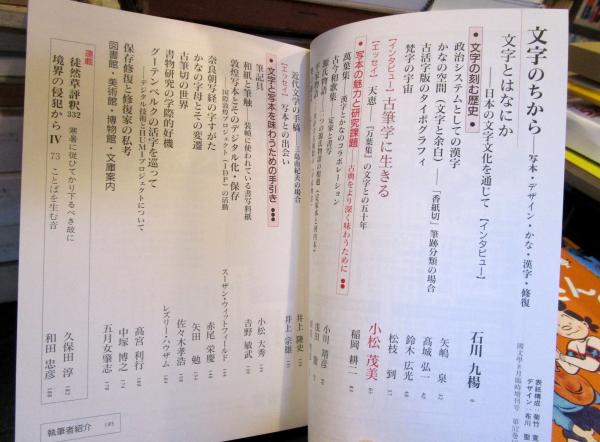 文字のちから——写本・デザイン・かな・漢字・修復
表紙構成
デザイン
國文學8月臨時増刊号
文字とはなにか
——日本の文字文化を通して【インタビュー】 石川 九楊
●文字の刻む歴史●
政治システムとしての漢字 矢嶋 泉
かなの空間(文字と余白)——「香紙切」筆跡分類の場合 高城 弘一
古活字版のタイポグラフィ 鈴木 広光
梵字の宇宙 松枝 到
【インタビュー】古筆学に生きる 小松 茂美
【エッセイ】天恵——『万葉集』の文字との五十年 稲岡 耕二
●写本の魅力と研究課題——古典をより深く味わうために●●
萬葉集 漢字とかなのコラボレーション 小川 靖彦
古今和歌集
源氏物語
平家物語
近代文学の手稿——三島由紀夫の場合 井上 隆史
【エッセイ】写本との出会い 井上 宗雄
●文字と写本を味わうための手引き●●●
筆記具 小松 大秀
和紙と筆触——装幀に使われている書写料紙 吉野 敏武
敦煌写本とそのデジタル化・保存
——国際敦煌プロジェクト(IDP)の活動 スーザン・ウィットフィールド
奈良朝写経の字すがた 赤尾 栄慶
かなの字母とその変遷 矢田 勉
古筆切の世界 佐々木孝浩
書物研究の学際的好機 レスリー・ハウザム
グーテンベルクの活字を巡って
——デジタル技術とHUMIプロジェクトについて 高宮 利行
保存修復と修復家の私考 中塚 博之
図書館・美術館・博物館・文庫案内 五月女肇志
連載
徒然草評釈 332 寒暑に従ひてかり下るべき故に 久保田 淳
境界の侵犯から Ⅳ 73 ことばを生む音 和田 忠彦
執筆者紹介